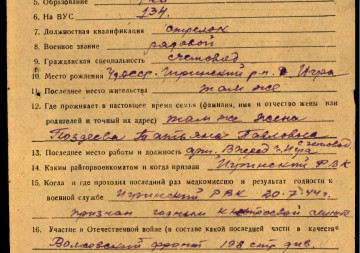 5. Образование
6. На ВУС 134.
7. Должностная квалификация стрелок
8. Военное звание рядовой
9. Гражданская специальность счетовод
10. Место рождения Удасср. Игринский р-н д. Игра
11. Последнее место жительства там же
12. Где проживает в настоящее время семья (фамилия, имя и отчество жены или
родителей и точный их адрес) там же жена
Поздеева Татьяна Павловна
13. Последнее место работы и должность счетовод
14. Каким райгорвоенкоматом и когда призван Игринский РВК
15. Когда и где проходил последний раз медкомиссию и результат годности к
военной службе Игринский РВК 20-7-44г.
признан годным к строевой службе
16. Участие в Отечественной войне (в составе какой последней части в качестве
Волховский фронт 198 стр. див.